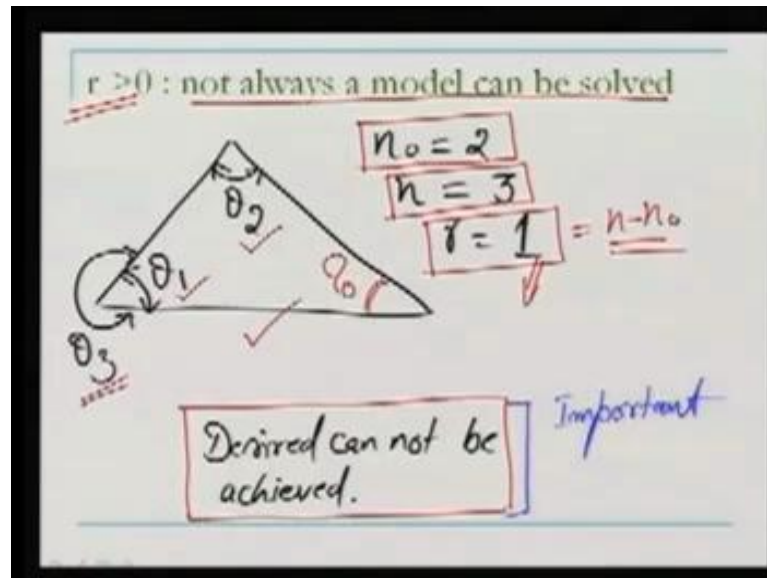 r >0 : not always a model can be solved
n₀ = 2
n = 3
r = 1 = n-n₀
θ₂
θ₁
θ₃
Desired can not be
achieved.
Important